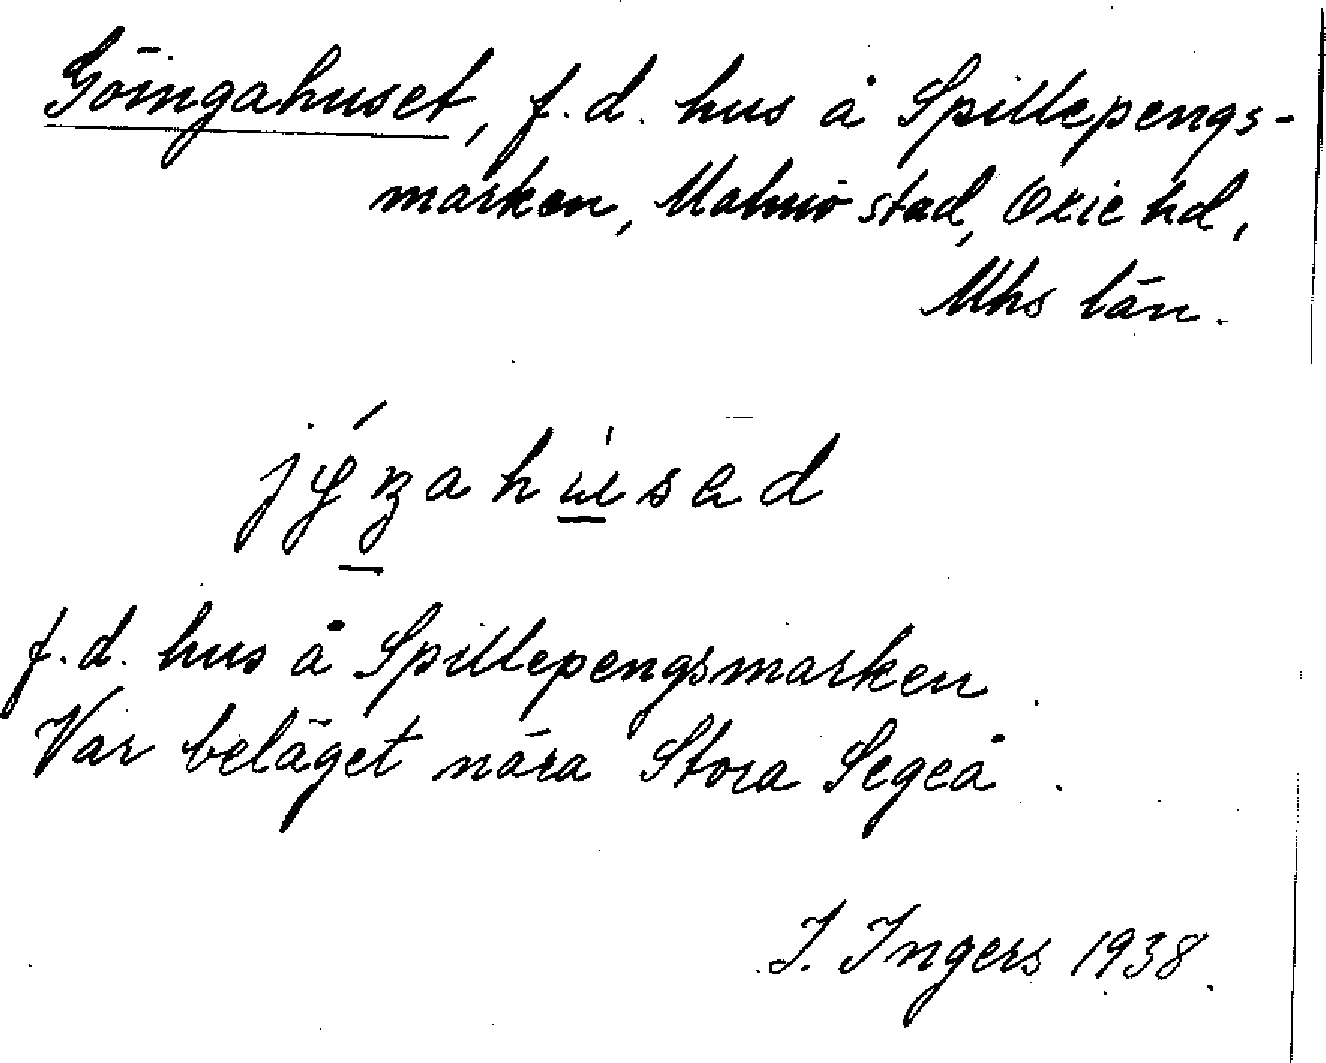 Göingahuset, f.d. hus å Spillepengs-
marken, Malmö stad, Oxie hd,
Mhs län.
f.d. hus å Spillepengsmarken.
Var beläget nära Stora Segeå.
I. Ingers 1938.